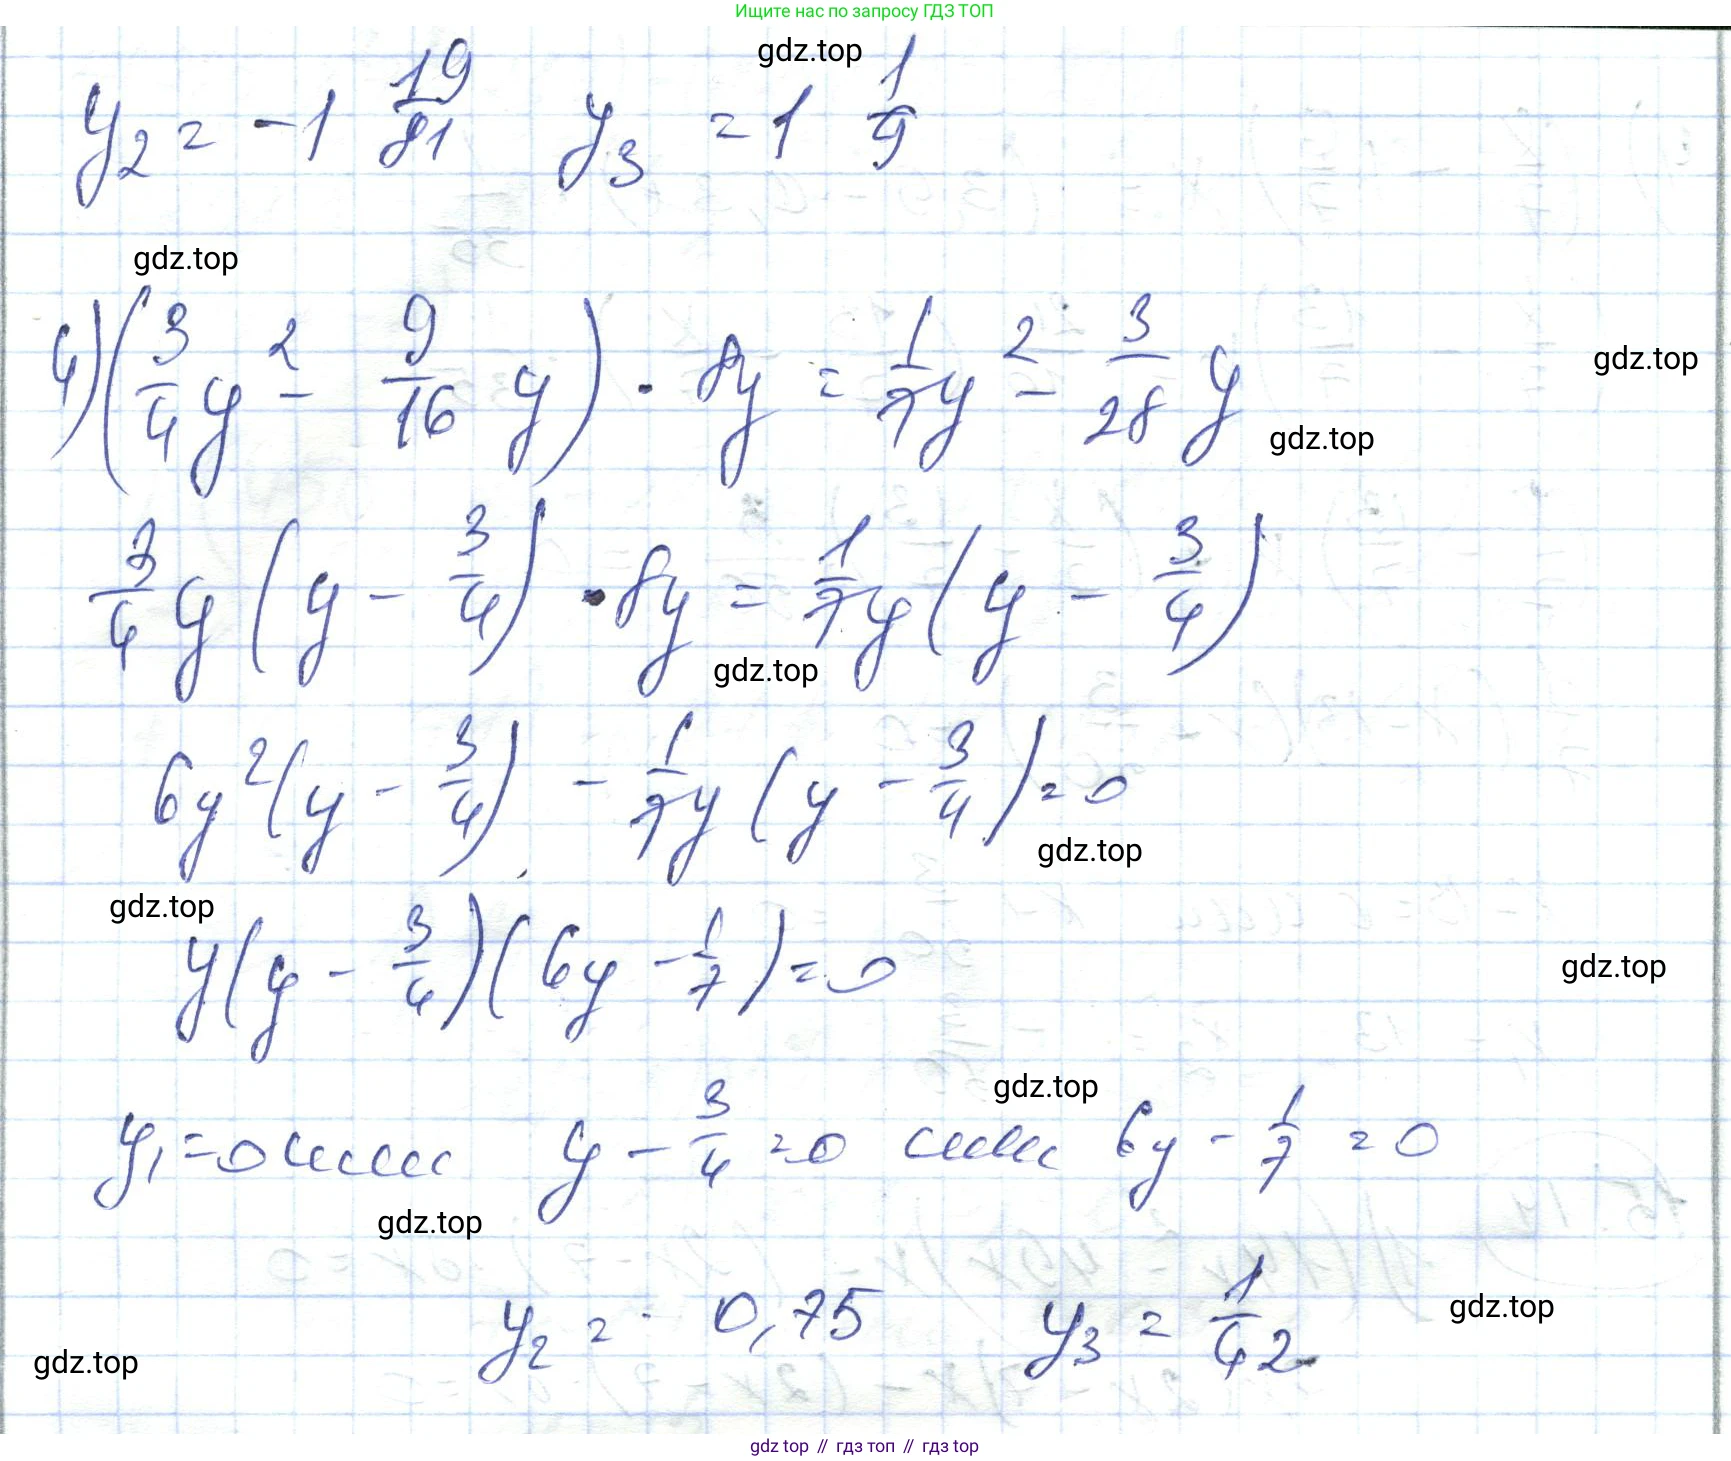 Ищите нас по запросу ГДЗ ТОП
gdz.top
y₂ = -1 19/81 y₃ = 1 1/9
gdz.top
4) (3/4 y² - 9/16 y) · 8y = 1/7 y² - 3/28 y
gdz.top
gdz.top
3/4 y (y - 3/4) · 8y = 1/7 y (y - 3/4)
gdz.top
6y² (y - 3/4) - 1/7 y (y - 3/4) = 0
gdz.top
gdz.top
y (y - 3/4) (6y - 1/7) = 0
gdz.top
gdz.top
y₁ = 0 или y - 3/4 = 0 или 6y - 1/7 = 0
gdz.top
y₂ = 0,75 y₃ = 1/42
gdz.top
gdz.top
gdz top // гдз топ // гдз top